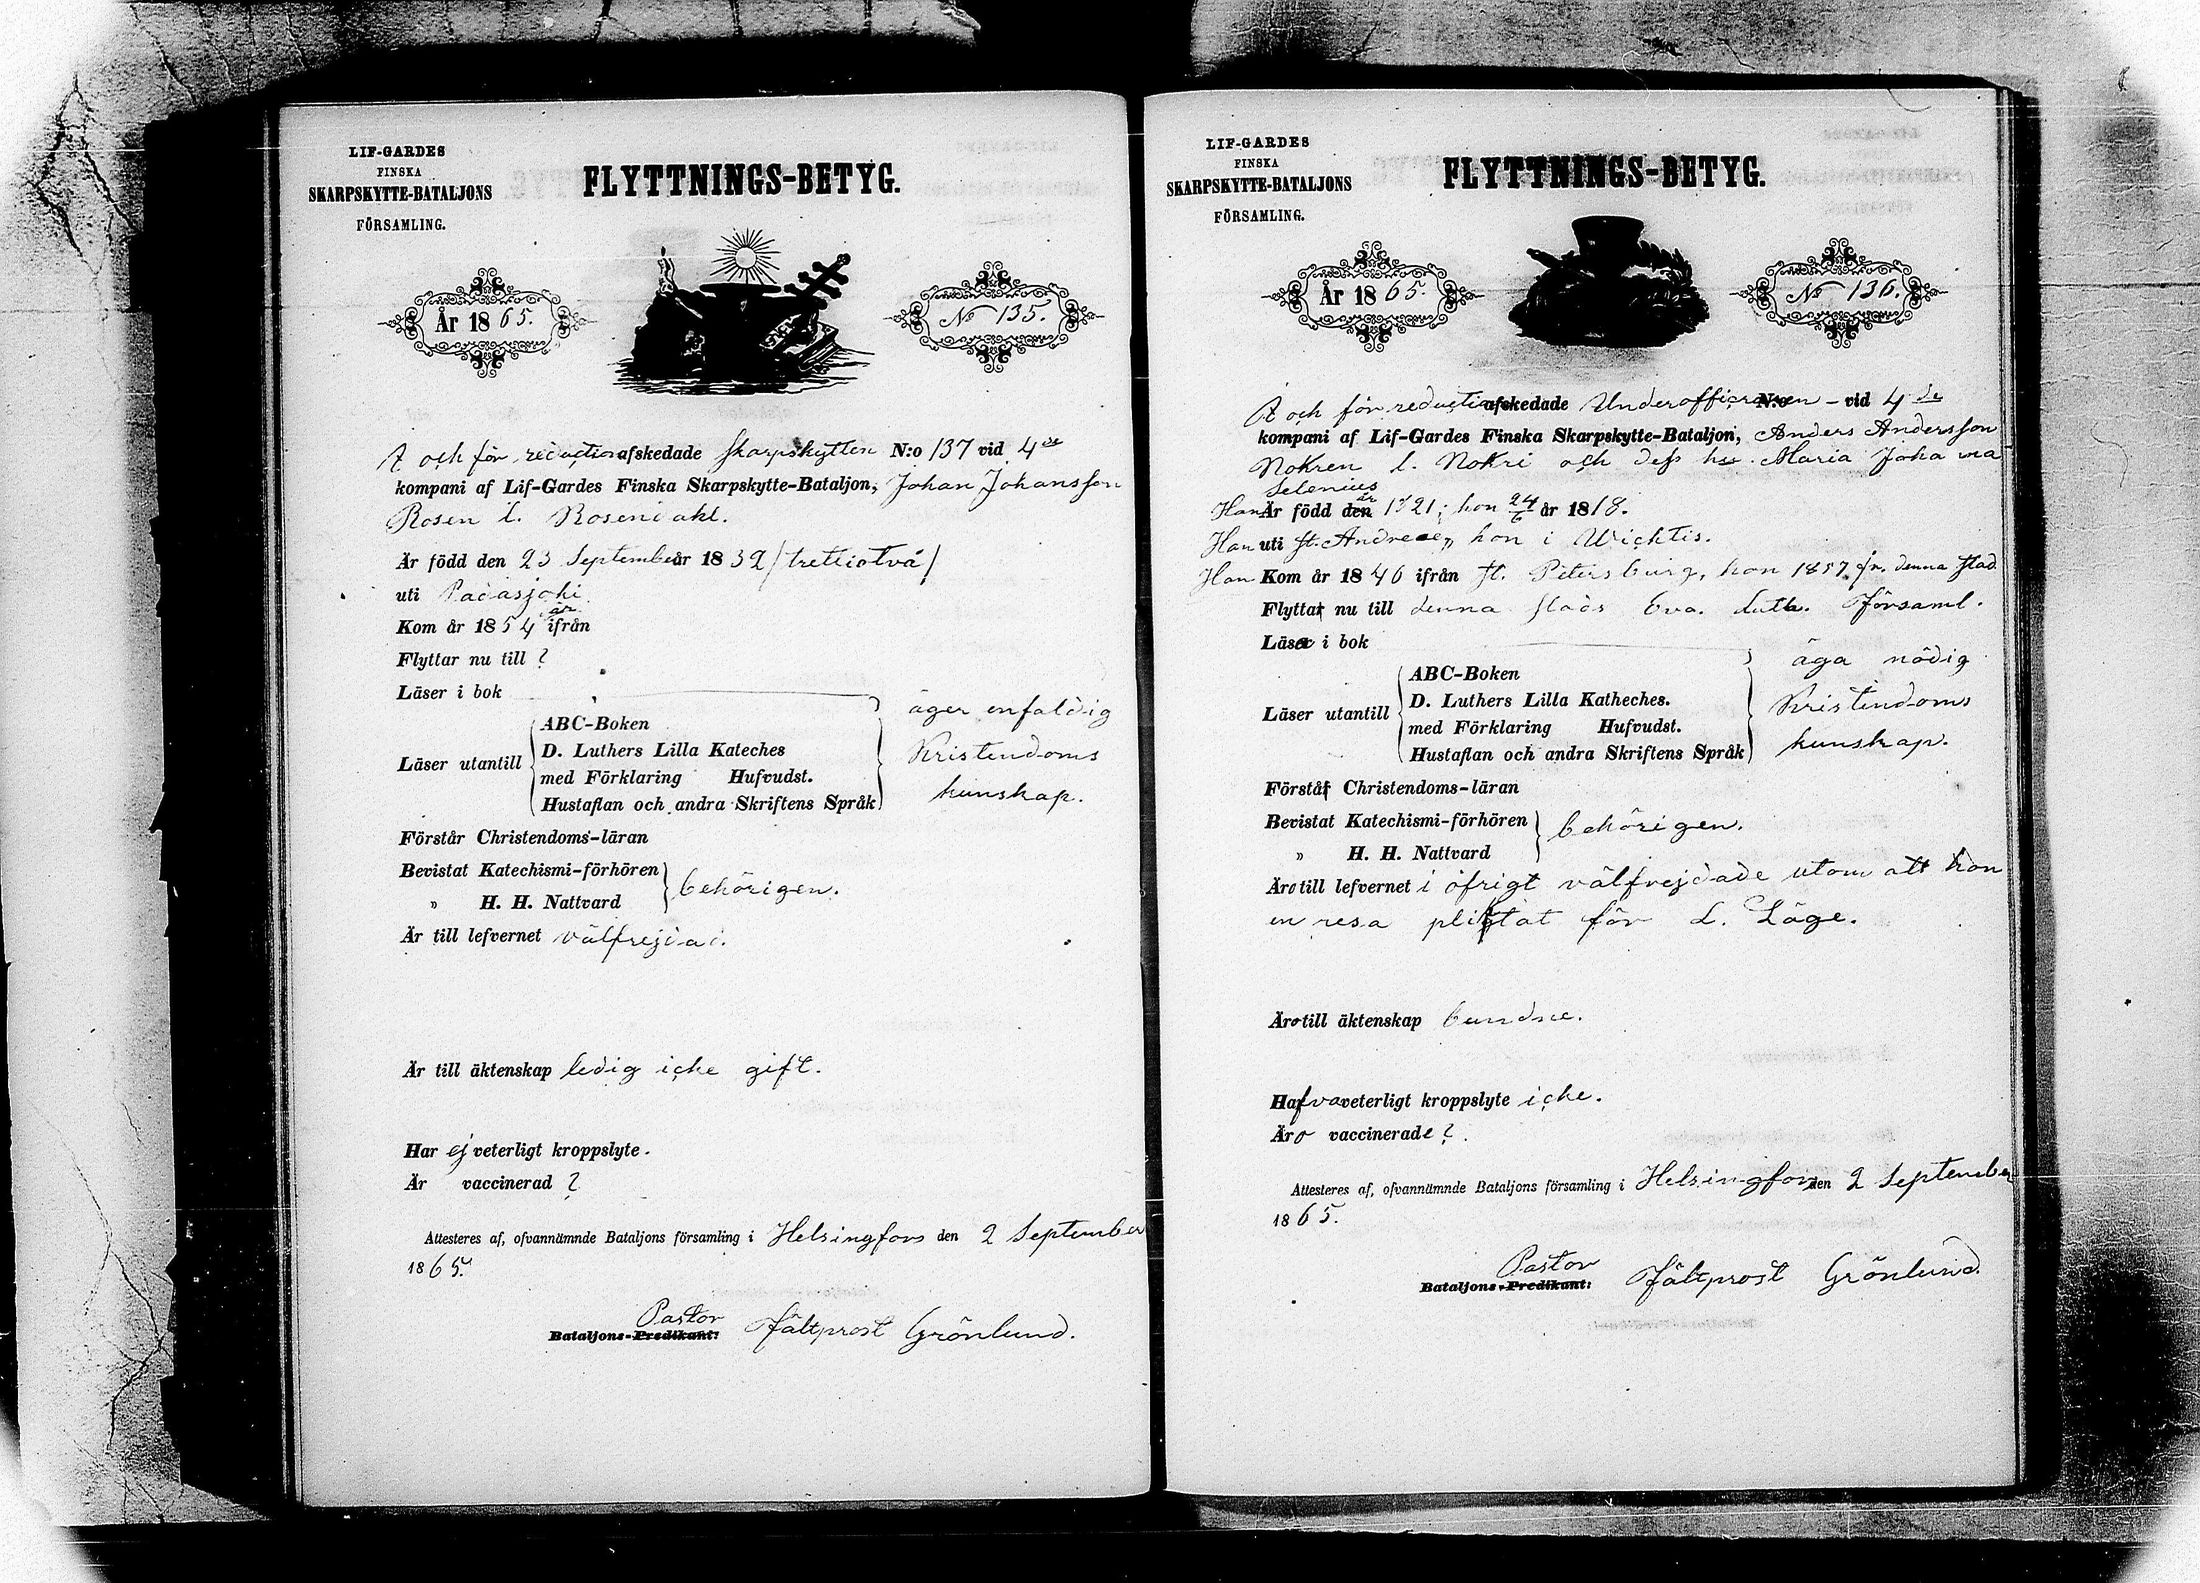 LIF-GARDES
FINSKA
SKARPSKYTTE-BATALJONS
FÖRSAMLING.
FLYTTNINGS-BETYG.
År 1865.
No 135.
A och för reduction afskedade Skarpskytten N:o 137 vid 4de
kompani af Lif-Gardes Finska Skarpskytte-Bataljon, Johan Johansson
Rosen l.
Är född den 23 September år 1832 /trettiotvå/
uti Padasjoki
Kom år 1854 är ifrån
Flyttar nu till ?
Läser i bok
Läser utantill
ABC-Boken
D. Luthers Lilla Kateches
med Förklaring Hufvudst.
Hustaflan och andra Skriftens Språk
äger enfaldig
Kristendoms
kunskap.
Förstår Christendoms-läran
Bevistat Katechismi-förhören
" H. H. Nattvard
behörigen.
Är till lefvernet välfrejdad.
Är till äktenskap ledig icke gift.
Har ej veterligt kroppslyte.
Är vaccinerad ?
Attesteres af, ofvannämnde Bataljons församling i Helsingfors den 2 September
1865.
Pastor
Bataljons-Predikant: Fältprost Grönlund.
LIF-GARDES
FINSKA
SKARPSKYTTE-BATALJONS
FÖRSAMLING.
FLYTTNINGS-BETYG.
År 1865.
No 136.
A och för reduction afskedade Underofficeraren N:o - vid 4de
kompani af Lif-Gardes Finska Skarpskytte-Bataljon, Anders Andersson
Nokren l. Nokri och dess hu. Maria Johanna
Selenius
Han Är född den år 1821; hon 24/6 år 1818.
Han uti St. Andreae, hon i Wichtis.
Han Kom år 1846 ifrån St. Petersburg, hon 1857 fr. denna stad
Flyttar nu till denna stads Eva. Luth. Församl.
Läsa i bok
Läser utantill
ABC-Boken
D. Luthers Lilla Katheches.
med Förklaring Hufvudst.
Hustaflan och andra Skriftens Språk
äga nödig
Kristendoms
kunskap.
Förstår Christendoms-läran
Bevistat Katechismi-förhören
" H. H. Nattvard
behörigen.
Äro till lefvernet i öfrigt välfrejdade utom att hon
en resa pligtat för L. Läge.
Äro till äktenskap bundne.
Hafva veterligt kroppslyte icke.
Äro vaccinerade ?
Attesteres af, ofvannämnde Bataljons församling i Helsingfors den 2 September
1865.
Pastor
Bataljons-Predikant: Fältprost Grönlund.